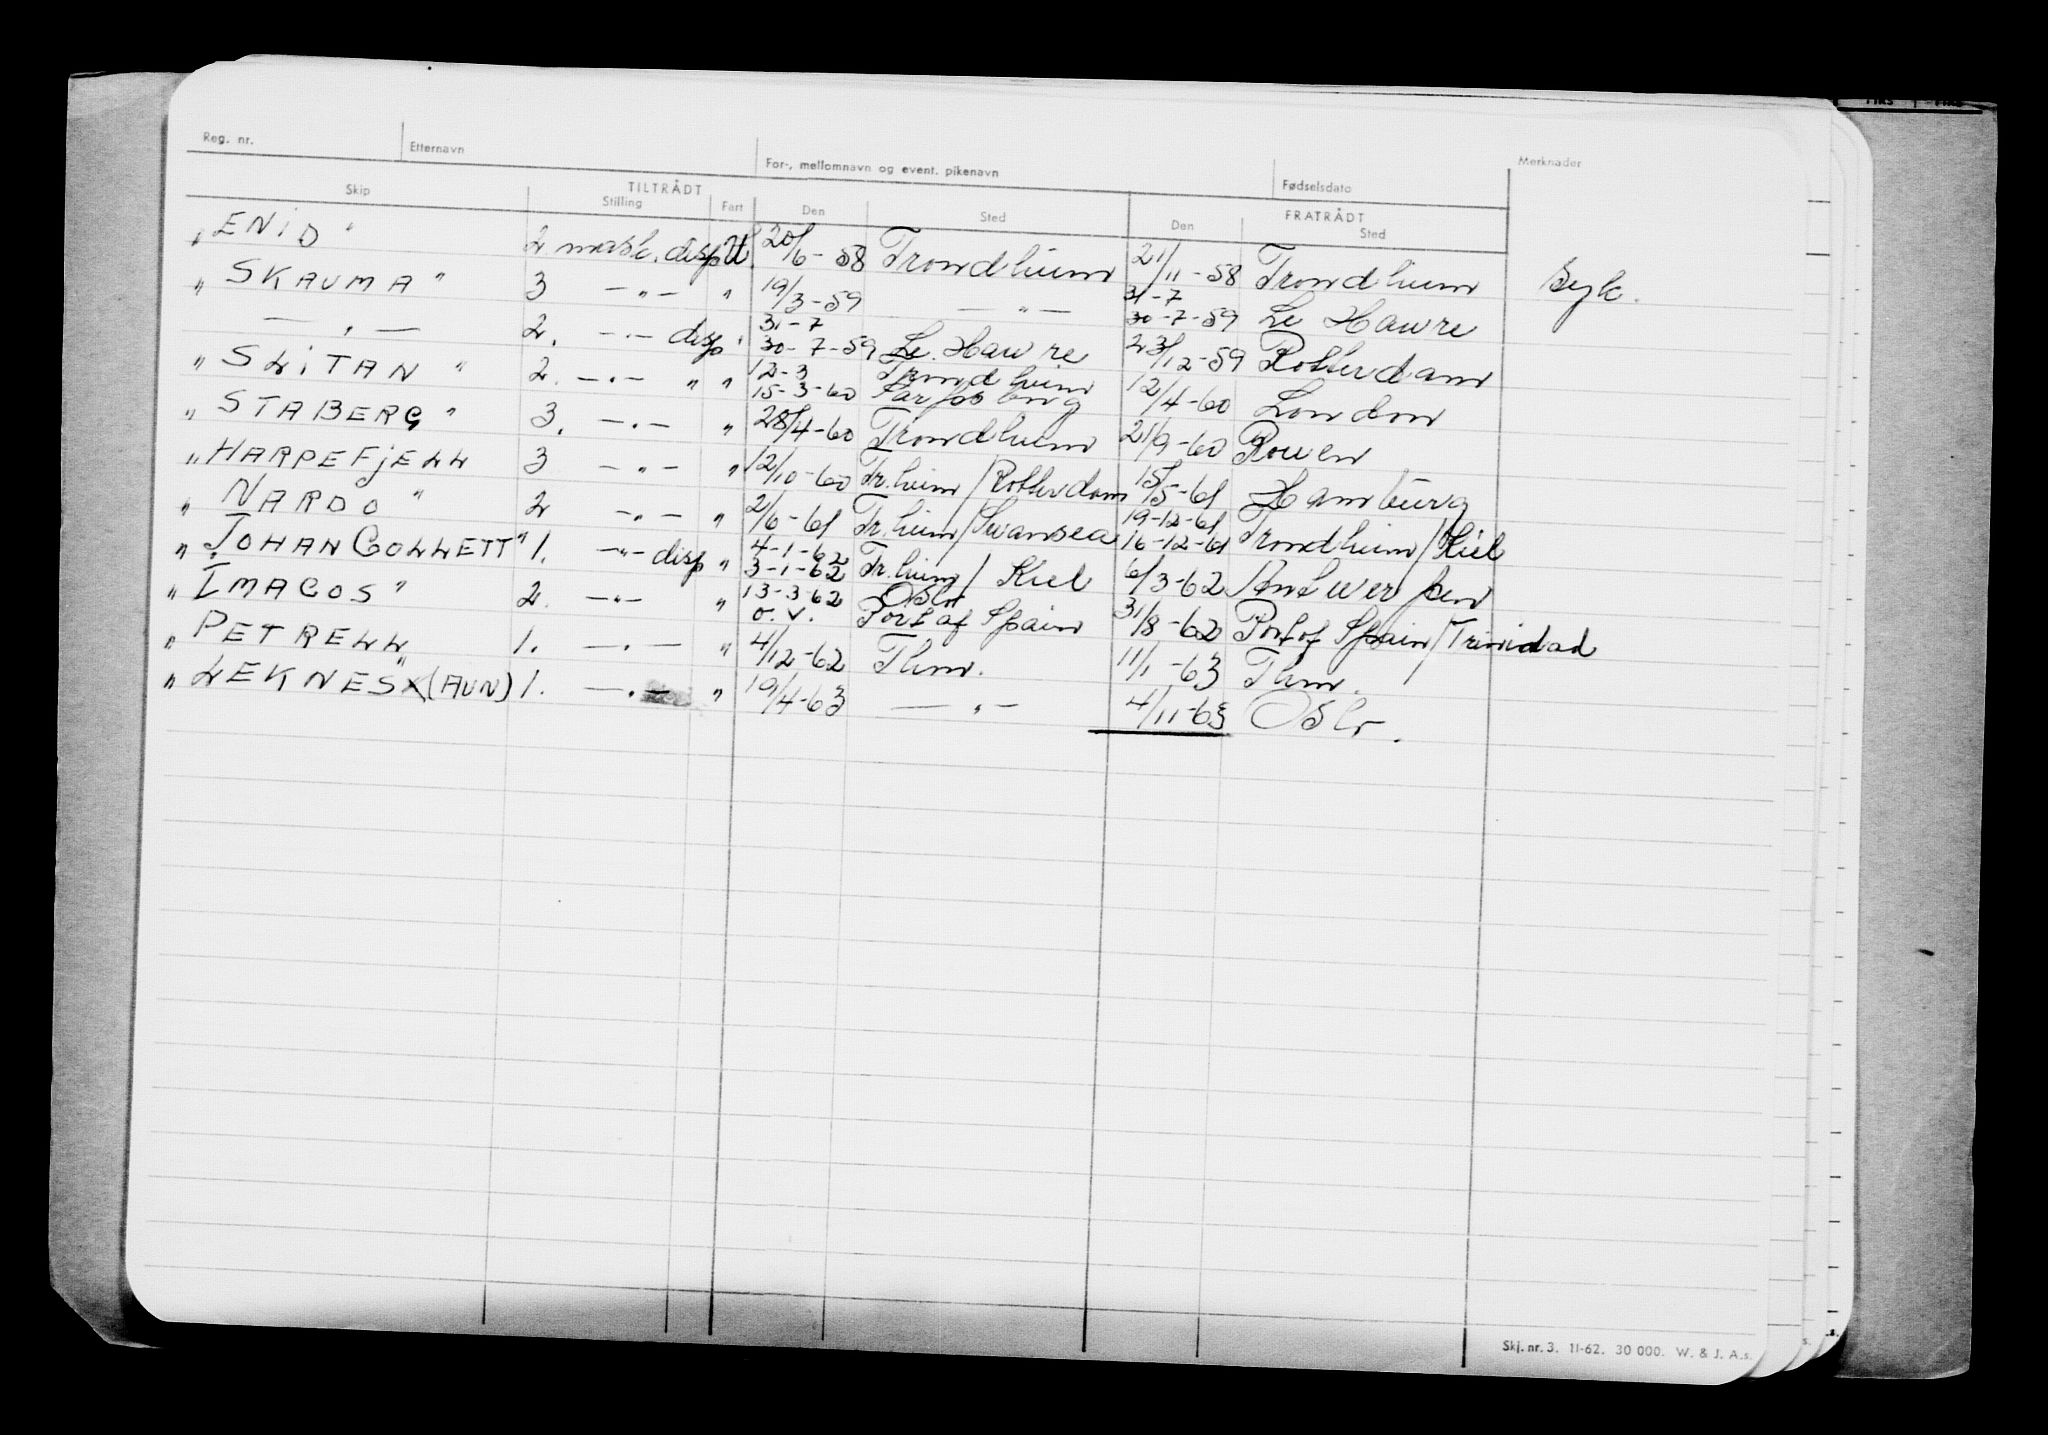 Reg. nr. Etternavn For-, mellomnavn og event. pikenavn Fødselsdato Merknader
TILTRÅDT FRATRÅDT
Skip Stilling Fart Den Sted Den Sted
" ENID " 2 mask. disp U. 20/6-58 Trondheim 21/11-58 Trondheim Syk.
" SKAUMA " 3 -"- " 19/3-59 -"- 31-7 30-7-59 Le Hawre
-"- 2. -"- disp " 31-7 30-7-59 Le. Hawre 23/12-59 Rotterdam
" SLITAN " 2. -"- " " 12-3 15-3-60 Trondheim Sarpsborg 12/4-60 London
" STABERG " 3. -"- " 28/4-60 Trondheim 21/9-60 Rouen
" HARPEFJELL 3 -"- " 12/10-60 Tr.heim / Rotterdam 15/5-61 Hamburg
" NARDO " 2 -"- " 2/6-61 Tr.heim / Swansea 19-12-61 16-12-61 Trondheim / Kiel
" JOHAN COLLETT " 1. -"- disp " 4-1-62 3-1-62 Tr.heim / Kiel 6/3-62 Antwerpen
" IMACOS " 2. -"- " 13-3-62 o.v. Oslo Port of Spain 31/8-62 Port of Spain / Trinidad
" PETRELL " 1. -"- " 4/12-62 Thm. 11/1-63 Thm.
" LEKNES (AUN) 1. -"- " 19/4-63 -"- 4/11-63 Oslo.
Skj. nr. 3. 11-62. 30 000. W. & J. A.s.